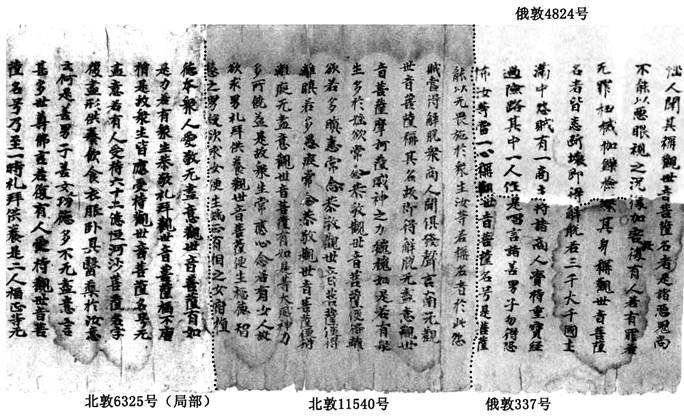 俄敦4824号
人聞其稱觀世音菩薩名者是諸惡鬼尚
不能以惡眼視之況復加害復有人若有罪若
无罪杻械枷鎖檢繫其身稱觀世音菩薩
名者皆悉斷壞即得解脫若三千大千國土
滿中怨賊有一商主將諸商人賫持重寶經
過險路其中一人作是唱言諸善男子勿得恐
怖汝等當一心稱觀世音菩薩名号是菩薩
能以无畏施於衆生汝等若稱名者於此怨
賊當得解脫衆商人聞俱發聲言南无觀
世音菩薩稱其名故即得解脫无盡意觀世
音菩薩摩訶薩威神之力巍巍如是若有衆
生多於婬欲常念恭敬觀世音菩薩便得離
欲若多瞋恚常念恭敬觀世音菩薩便得
離瞋若多愚癡常念恭敬觀世音菩薩便得
離癡无盡意觀世音菩薩有如是等大威神力
多所饒益是故衆生常應心念若有女人設
欲求男礼拜供養觀世音菩薩便生福德智
慧之男設欲求女便生端正有相之女宿植
德本衆人愛敬无盡意觀世音菩薩有如
是力若有衆生恭敬礼拜觀世音菩薩福不唐
捐是故衆生皆應受持觀世音菩薩名号无
盡意若有人受持六十二億恒河沙菩薩名字
復盡形供養飲食衣服卧具醫藥於汝意
云何是善男子善女人功德多不无盡意言
甚多世尊佛言若復有人受持觀世音菩
薩名号乃至一時礼拜供養是二人福正等无
北敦6325号（局部）
北敦11540号
俄敦337号